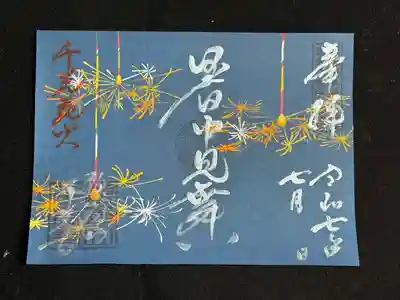 奉拝
令和七年
七月 日
暑中見舞
千寿花火